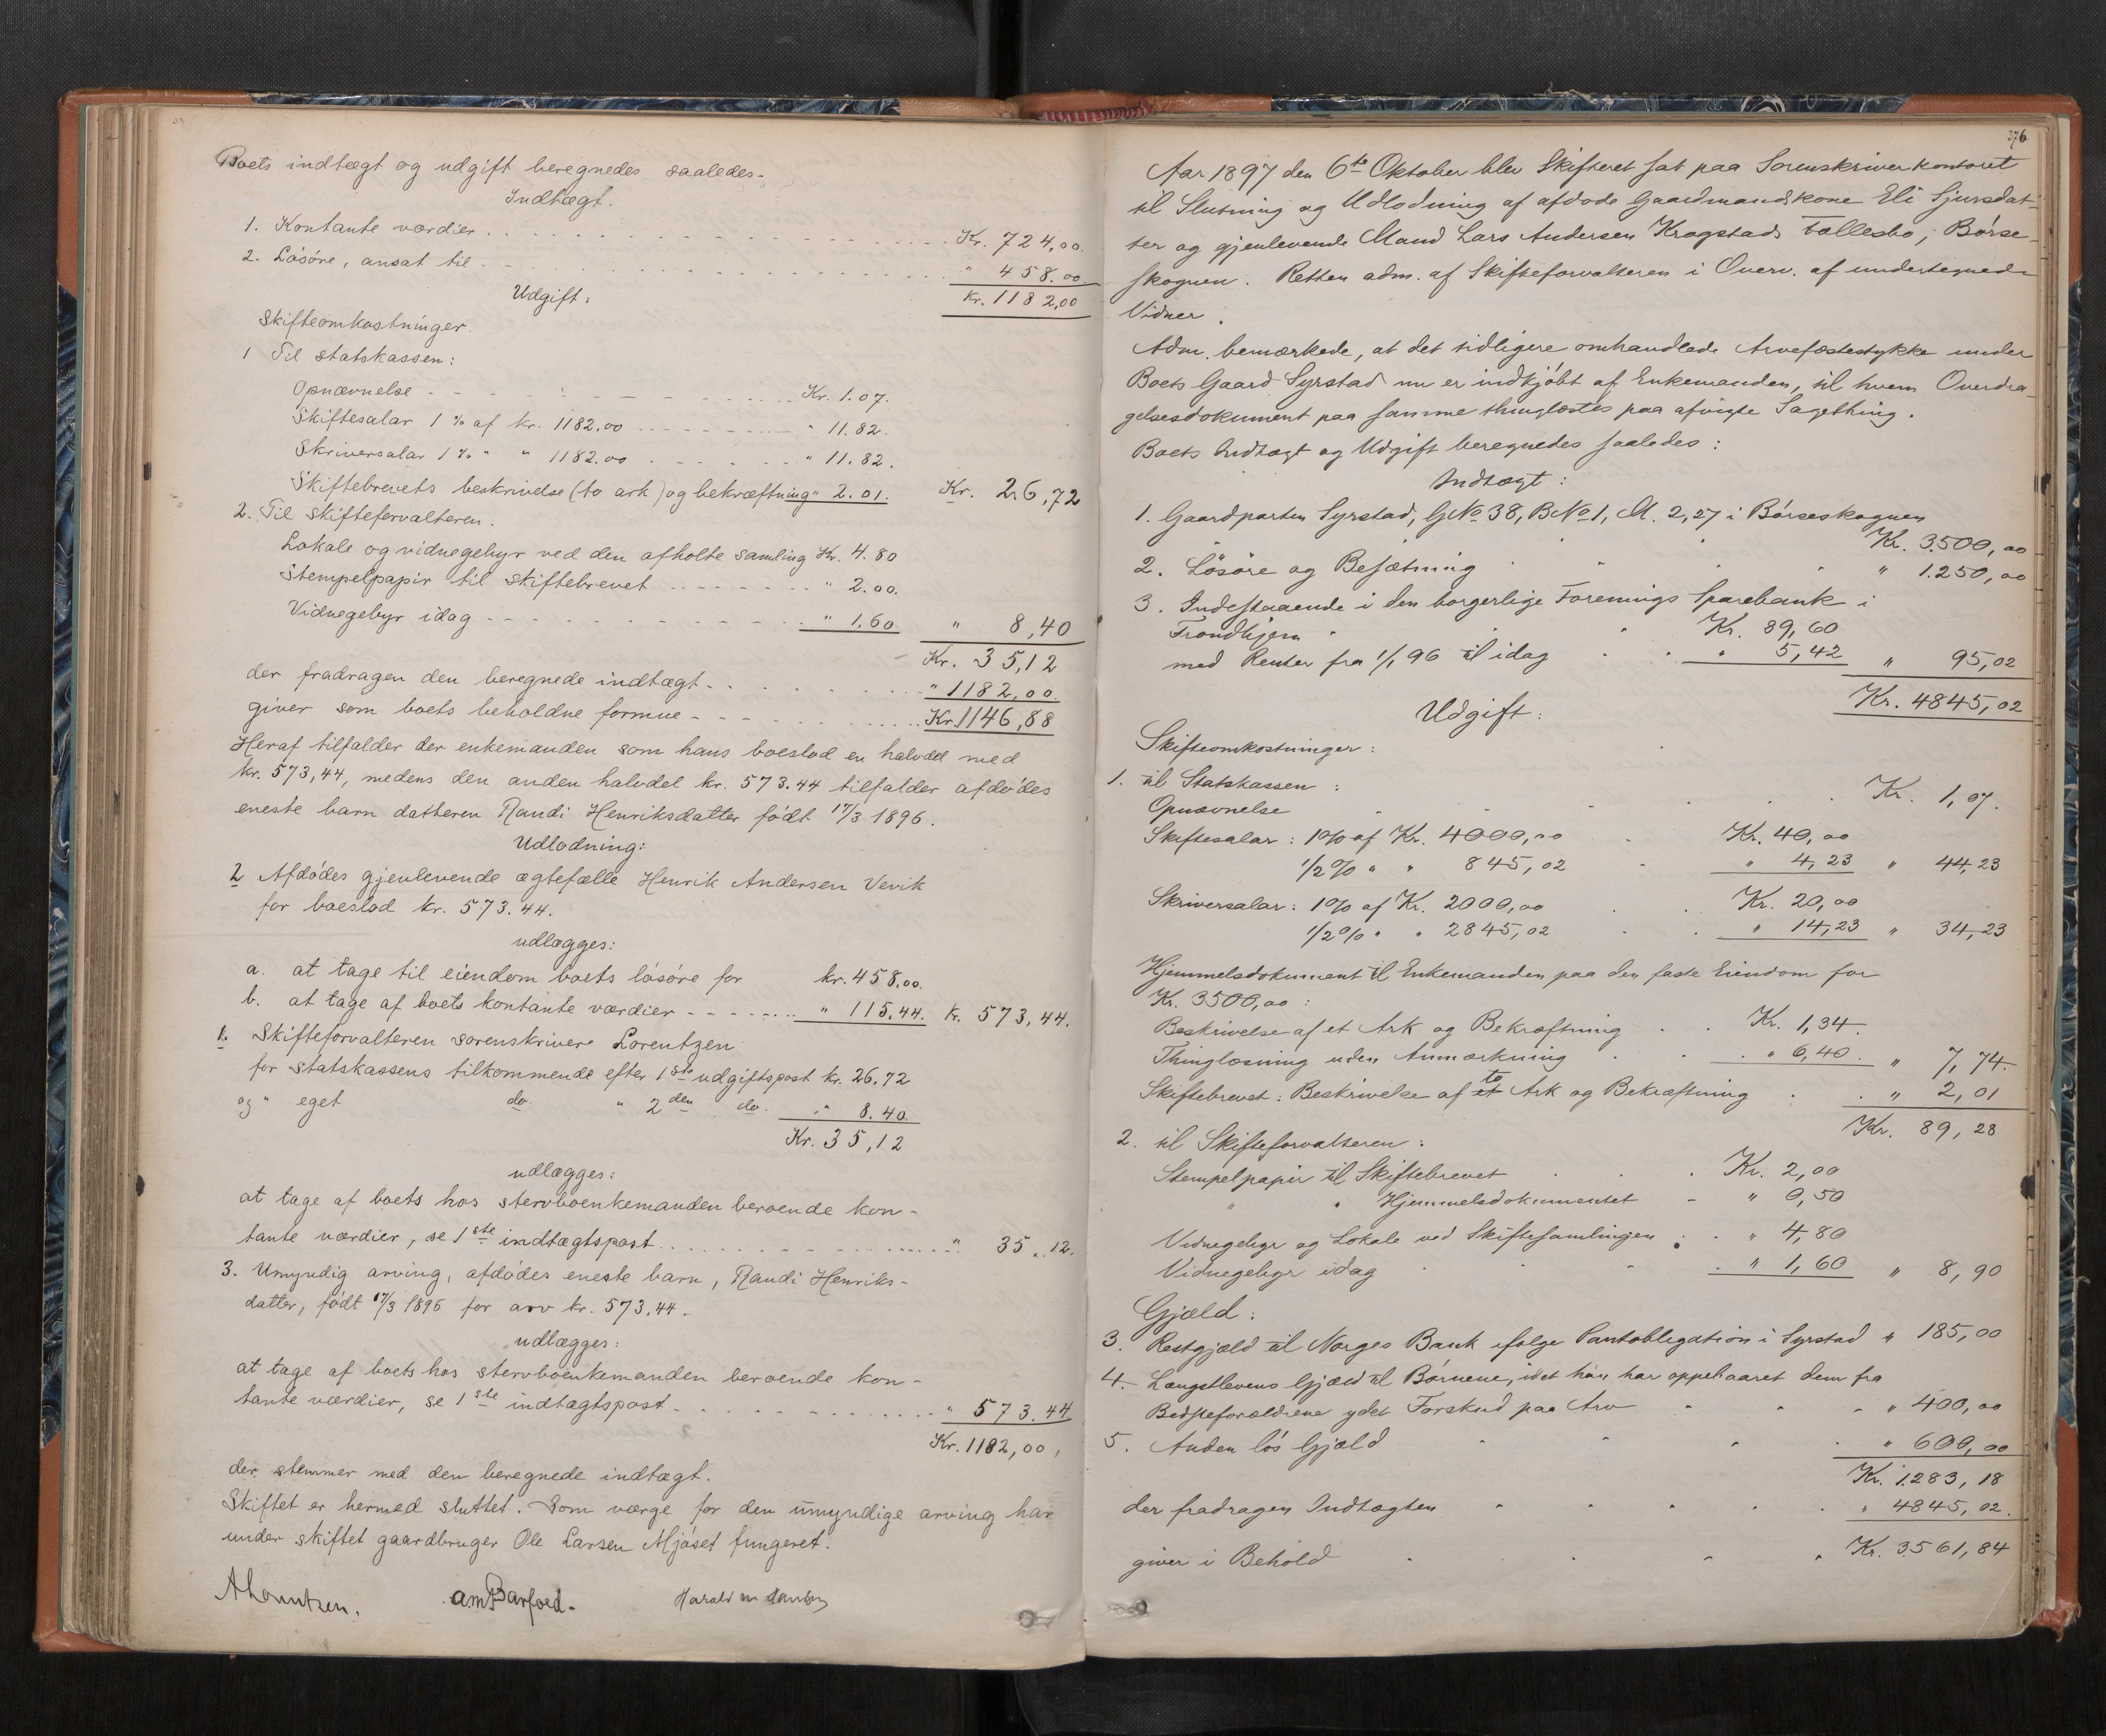 Boets indtægt og udgift beregnedes saaledes.
Indtægt.
1. Kontante værdier . . . Kr. 724,00
2. Løsøre, ansat til . . . " 458.00
Kr. 1182,00
Udgift:
Skifteomkostninger.
1 Til statskassen:
Opnævnelse . . . Kr. 1.07.
Skiftesalar 1 % af kr. 1182.00 . . . " 11.82.
Skriversalar 1 % " " 1182.00 . . . " 11.82.
Skiftebrevets beskrivelse (to ark) og bekræftning " 2.01. Kr. 26,72
2. Til skifteforvalteren.
Lokale og vidnegebyr ved den afholte samling Kr. 4.80
Stempelpapir til skiftebrevet . . . " 2.00.
Vidnegebyr idag . . . " 1.60 " 8,40
Kr. 35,12
der fradragen den beregnede indtægt . . . " 1182,00.
giver som boets beholdne formue . . . Kr. 1146,88
Heraf tilfalder der enkemanden som hans boeslod en halvdel med
kr. 573,44, medens den anden halvdel kr. 573.44 tilfalder afdødes
eneste barn datteren Randi Henriksdatter født 17/3 1896.
Udlodning:
2 Afdødes gjenlevende ægtefælle Henrik Andersen Vevik
for boeslod kr. 573.44.
udlægges:
a. at tage til eiendom boets løsøre for kr. 458.00.
b. at tage af boets kontante værdier . . . " 115.44. kr. 573,44.
1. Skifteforvalteren sorenskriver Lorentzen
for statskassens tilkommende efter 1ste udgiftspost kr. 26.72
og " eget do " 2den do. " 8.40.
Kr. 35,12
udlægges:
at tage af boets hos stervboenkemanden beroende kon-
tante værdier, se 1ste indtægtspost . . . " 35.12.
3. Umyndig arving, afdødes eneste barn, Randi Henriks-
datter, født 17/3 1896 for arv kr. 573.44.
udlægges:
at tage af boets hos stervboenkemanden beroende kon-
tante værdier, se 1ste indtægtspost . . . " 573.44
Kr. 1182,00,
der stemmer med den beregnede indtægt.
Skiftet er hermed sluttet. Som værge for den umyndige arving har
under skiftet gaardbruger Ole Larsen Mjøset fungeret.
ALorentzen. AMBarfoed. Harald
376
Aar 1897 den 6te Oktober blev Skifteret sat paa Sorenskriverkontoret
til Slutning og Udlodning af afdøde Gaardmandskone Eli Sjursdat-
ter og gjenlevende Mand Lars Andersen Krogstads Fællesbo, Børse-
skognen. Retten adm. af Skifteforvalteren i Overv. af undertegnede
Vidner.
Adm. bemærkede, at det tidligere omhandlede Arvefæstestykke under
Boets Gaard Syrstad nu er indkjøbt af Enkemanden, til hvem Overdra-
gelsesdokument paa samme thinglæstes paa afvigte Sagething.
Boets Indtægt og Udgift beregnedes saaledes:
Indtægt:
1. Gaardparten Syrstad, GNo 38, BNo 1, M. 2,27 i Børseskognen
Kr. 3500,00
2. Løsøre og Besætning " 1.250,00
3. Indestaaende i den borgerlige Forenings Sparebank i
Trondhjem " Kr. 89,60
med Renter fra 1/1 96 til idag " 5,42 " 95,02
Kr. 4845,02
Udgift:
Skifteomkostninger:
1. til Statskassen:
Opnævnelse Kr. 1,07.
Skiftesalar: 1% af Kr. 4000,00 Kr. 40,00
1/2% " " 845,02 " 4,23 " 44,23
Skriversalar: 1% af Kr. 2000,00 Kr. 20,00
1/2% " " 2845,02 " 14,23 " 34,23
Hjemmelsdokument til Enkemanden paa den faste Eiendom for
Kr. 3500,00:
Beskrivelse af et Ark og Bekræftning Kr. 1,34.
Thinglæsning uden Anmærkning " 6,40. " 7,74.
Skiftebrevet: Beskrivelse af et to Ark og Bekræftning " 2,01
Kr. 89,28
2. til Skifteforvalteren:
Stempelpapir til Skiftebrevet Kr. 2,00
" " Hjemmelsdokumentet - " 0,50
Vidnegebyr og Lokale ved Skiftesamlingen " 4,80
Vidnegebyr idag " 1,60 " 8,90
Gjæld:
3. Restgjæld til Norges Bank ifølge Pantobligation i Syrstad " 185,00
4. Længstlevens Gjæld til Børnene, idet han har oppebaaret dem fra
Bedsteforældrene ydet Forskud paa Arv " 400,00
5. Anden løs Gjæld " 600,00
Kr. 1283,18
der fradragen Indtægten " 4845,02.
giver i Behold Kr. 3561,84